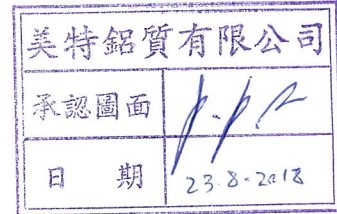 美特鋁質有限公司
承認圖面
日 期 23.8-2018